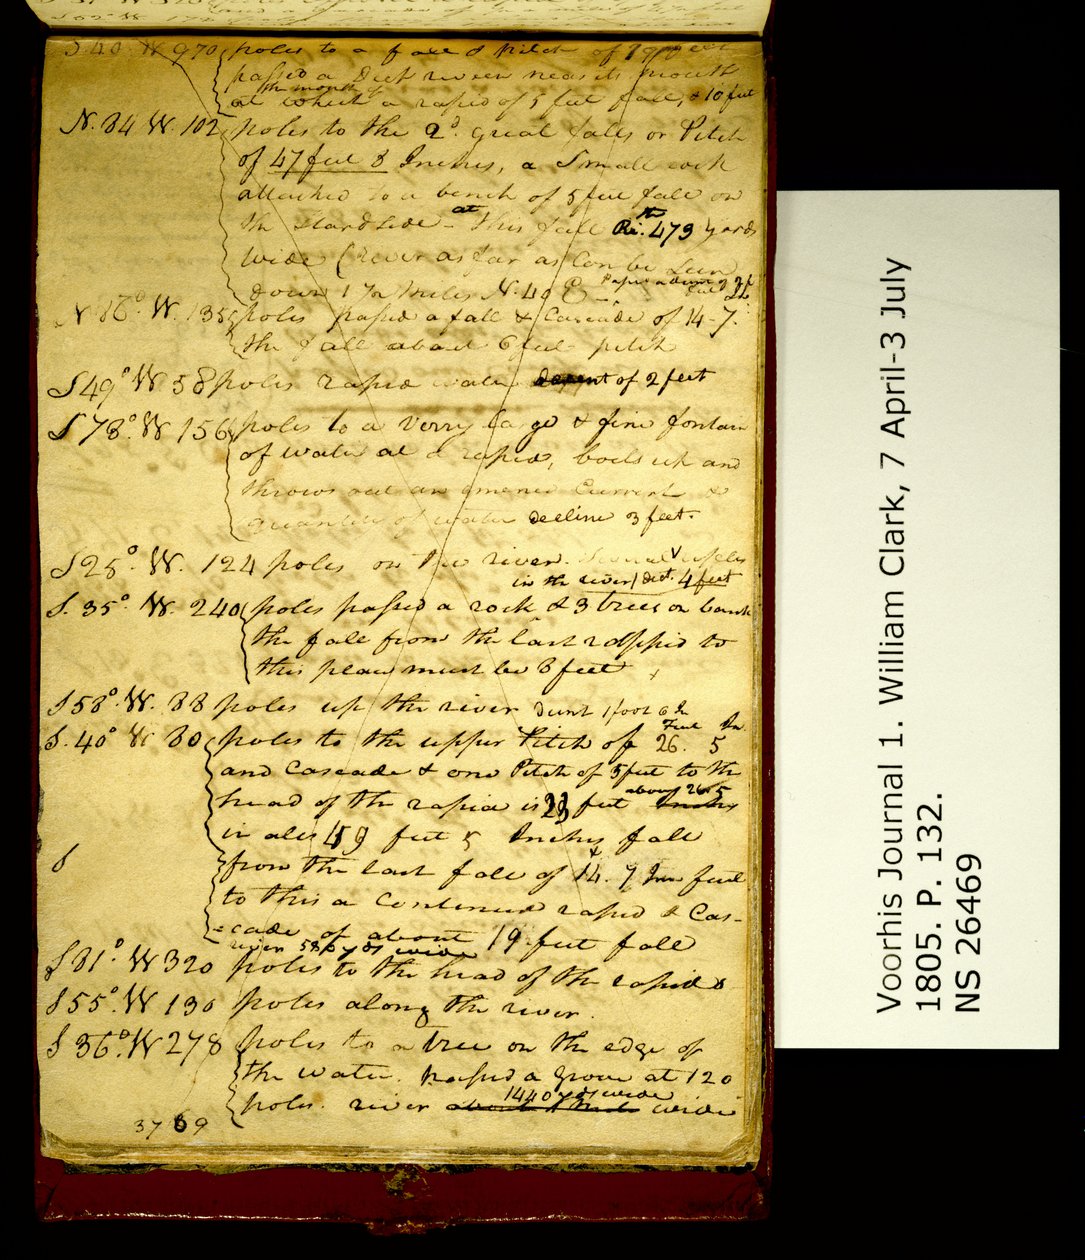 S 40 W 970 poles to a fall & pitch of 19 feet
passed a Deep riveen near its mouth
at which a rapid of 5 feet fall, & 10 feet
the mouth of
N. 84 W. 102 poles to the 2d. great falls or Pitch
of 47 feet 8 Inches, a Small rock
attached to a bench of 5 feet fall on
the Stard Side - at this fall the Ri. 473 yards
wide (river as far as Can be Seen
down 1 ½ Miles N. 40 E -
poles passed a fall & Cascade of 14-7.
the fall about 6 feet pitch
S 49° W 58 poles rapid water of 2 feet
S 78° W 156 poles to a Verry large & fine fontain
of water at a rapid, boils up and
throws out an emence Current &
quantity of water decline 3 feet.
S 25° W. 124 poles on the river
in the river 4 feet
S. 35° W. 240 poles passed a rock & 3 trees on bank
the fall from the last rappid to
this place must be 8 feet
S 58° W. 88 poles up the river 1 foot 6 I
S. 40° W 80 poles to the upper Pitch of 26. 5
Feet In
and Cascade & one Pitch of 5 feet to the
head of the rapid is feet
about 26.5
in all feet 5 Inches fall
S from the last fall of 14. 7 Inc feet
to this a Continued rapid & Cas-
=cade of about 19 feet fall
river 580 yds wide
S 81° W 320 poles to the head of the rapid &
S 55° W 130 poles along the river.
S 36° W 278 poles to a tree on the edge of
the water. passed a Grove at 120
poles. river wide
1440 yds wide
3769
Voorhis Journal 1. William Clark, 7 April-3 July
1805. P. 132.
NS 26469